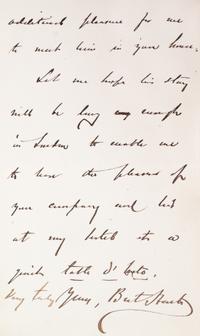 additional pleasure for me
to meet him in your house.
Let me hope his stay
will be long enough
in London to enable me
to have the pleasure of
your company and his
at my hotel at a
quiet table d'hote.
Very truly Yours, Bret Harte